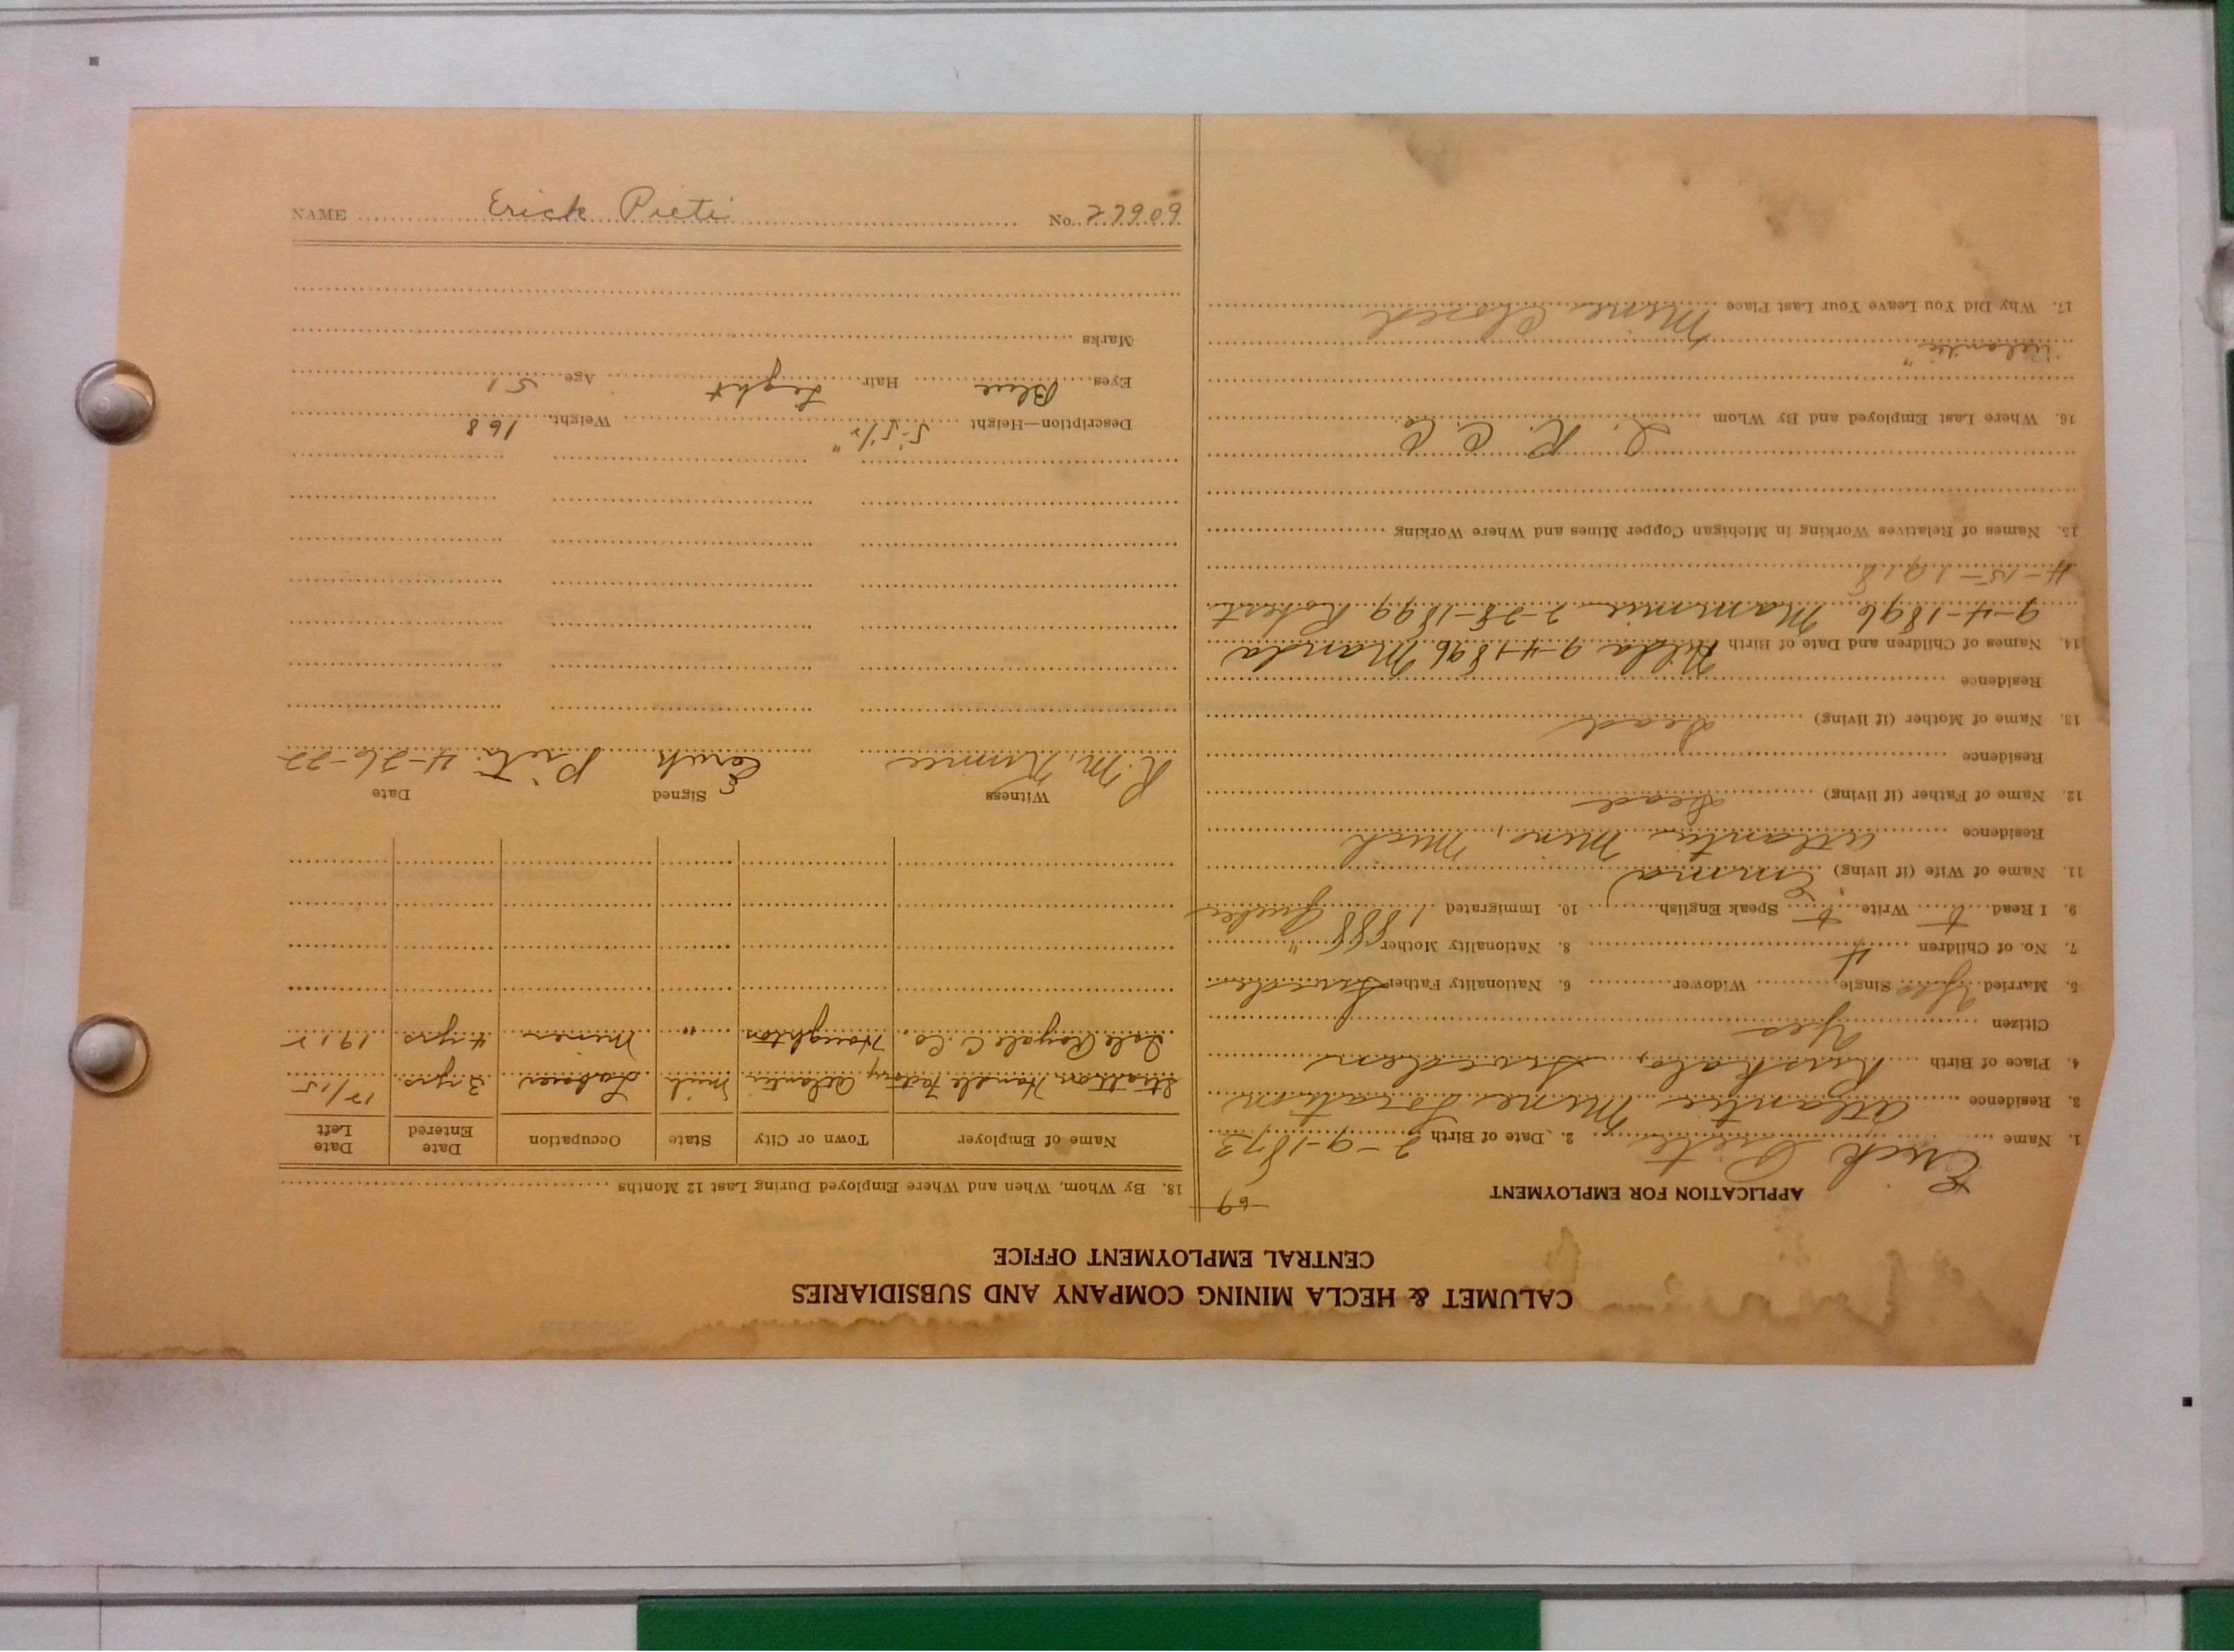 CALUMET & HECLA MINING COMPANY AND SUBSIDIARIES
CENTRAL EMPLOYMENT OFFICE
APPLICATION FOR EMPLOYMENT
1. Name Erick Pieti 2. Date of Birth 2-9-1873
3. Residence Atlantic Mine Location
4. Place of Birth Sweden
Citizen Yes
5. Married Yes Single Widower 6. Nationality Father Sweden
7. No. of Children 4 8. Nationality Mother "
9. I Read Write Speak English 10. Immigrated 1888
11. Name of Wife (if living) Emma
Residence Atlantic Mine, Mich
12. Name of Father (if living) Dead
Residence
13. Name of Mother (if living) Dead
Residence
14. Names of Children and Date of Birth Hilda 9-4-1896 Manda
9-4-1896 Mammie 2-28-1899 Robert
4-15-1918
15. Names of Relatives Working in Michigan Copper Mines and Where Working
16. Where Last Employed and By Whom I. R. C. Co.
Atlantic "
17. Why Did You Leave Your Last Place Mine Closed
18. By Whom, When and Where Employed During Last 12 Months
Name of Employer Town or City State Occupation Date Entered Date Left
Stratton Handle Factory Atlantic Mich Laborer 3 yrs 12/15
Isle Royale C. Co. Houghton " Miner 4 yrs 1912
Witness Signed Date
R. M. Erick Pieti 4-26-22
Description—Height 5-5 1/2" Weight 168
Eyes Blue Hair Light Age 51
Marks
NAME Erick Pieti No. 27909